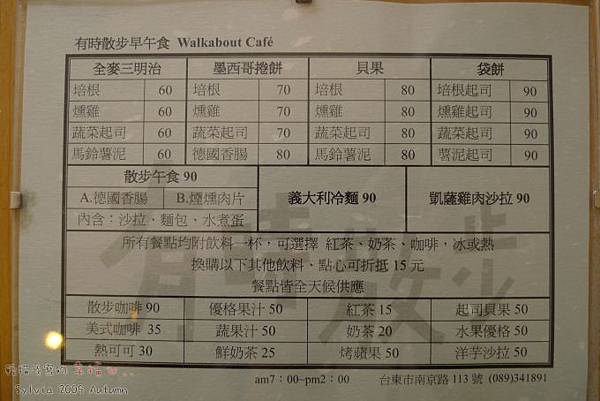 有時散步早午食 Walkabout Café
全麥三明治 墨西哥捲餅 貝果 袋餅
培根 60 培根 70 培根 80 培根起司 90
燻雞 60 燻雞 70 燻雞 80 燻雞起司 90
蔬菜起司 60 蔬菜起司 70 蔬菜起司 80 蔬菜起司 90
馬鈴薯泥 60 德國香腸 80 馬鈴薯泥 80 薯泥起司 90
散步午食 90
A.德國香腸 B.煙燻肉片 義大利冷麵 90 凱薩雞肉沙拉 90
內含：沙拉．麵包．水煮蛋
所有餐點均附飲料一杯，可選擇 紅茶、奶茶、咖啡，冰或熱
換購以下其他飲料、點心可折抵 15 元
餐點皆全天候供應
散步咖啡 90 優格果汁 50 紅茶 15 起司貝果 50
美式咖啡 35 蔬果汁 50 奶茶 20 水果優格 50
熱可可 30 鮮奶茶 25 烤蘋果 50 洋芋沙拉 50
am7：00~pm2：00 台東市南京路 113 號 (089)341891
有時散步
幸福
Sylvia 2009 Autumn